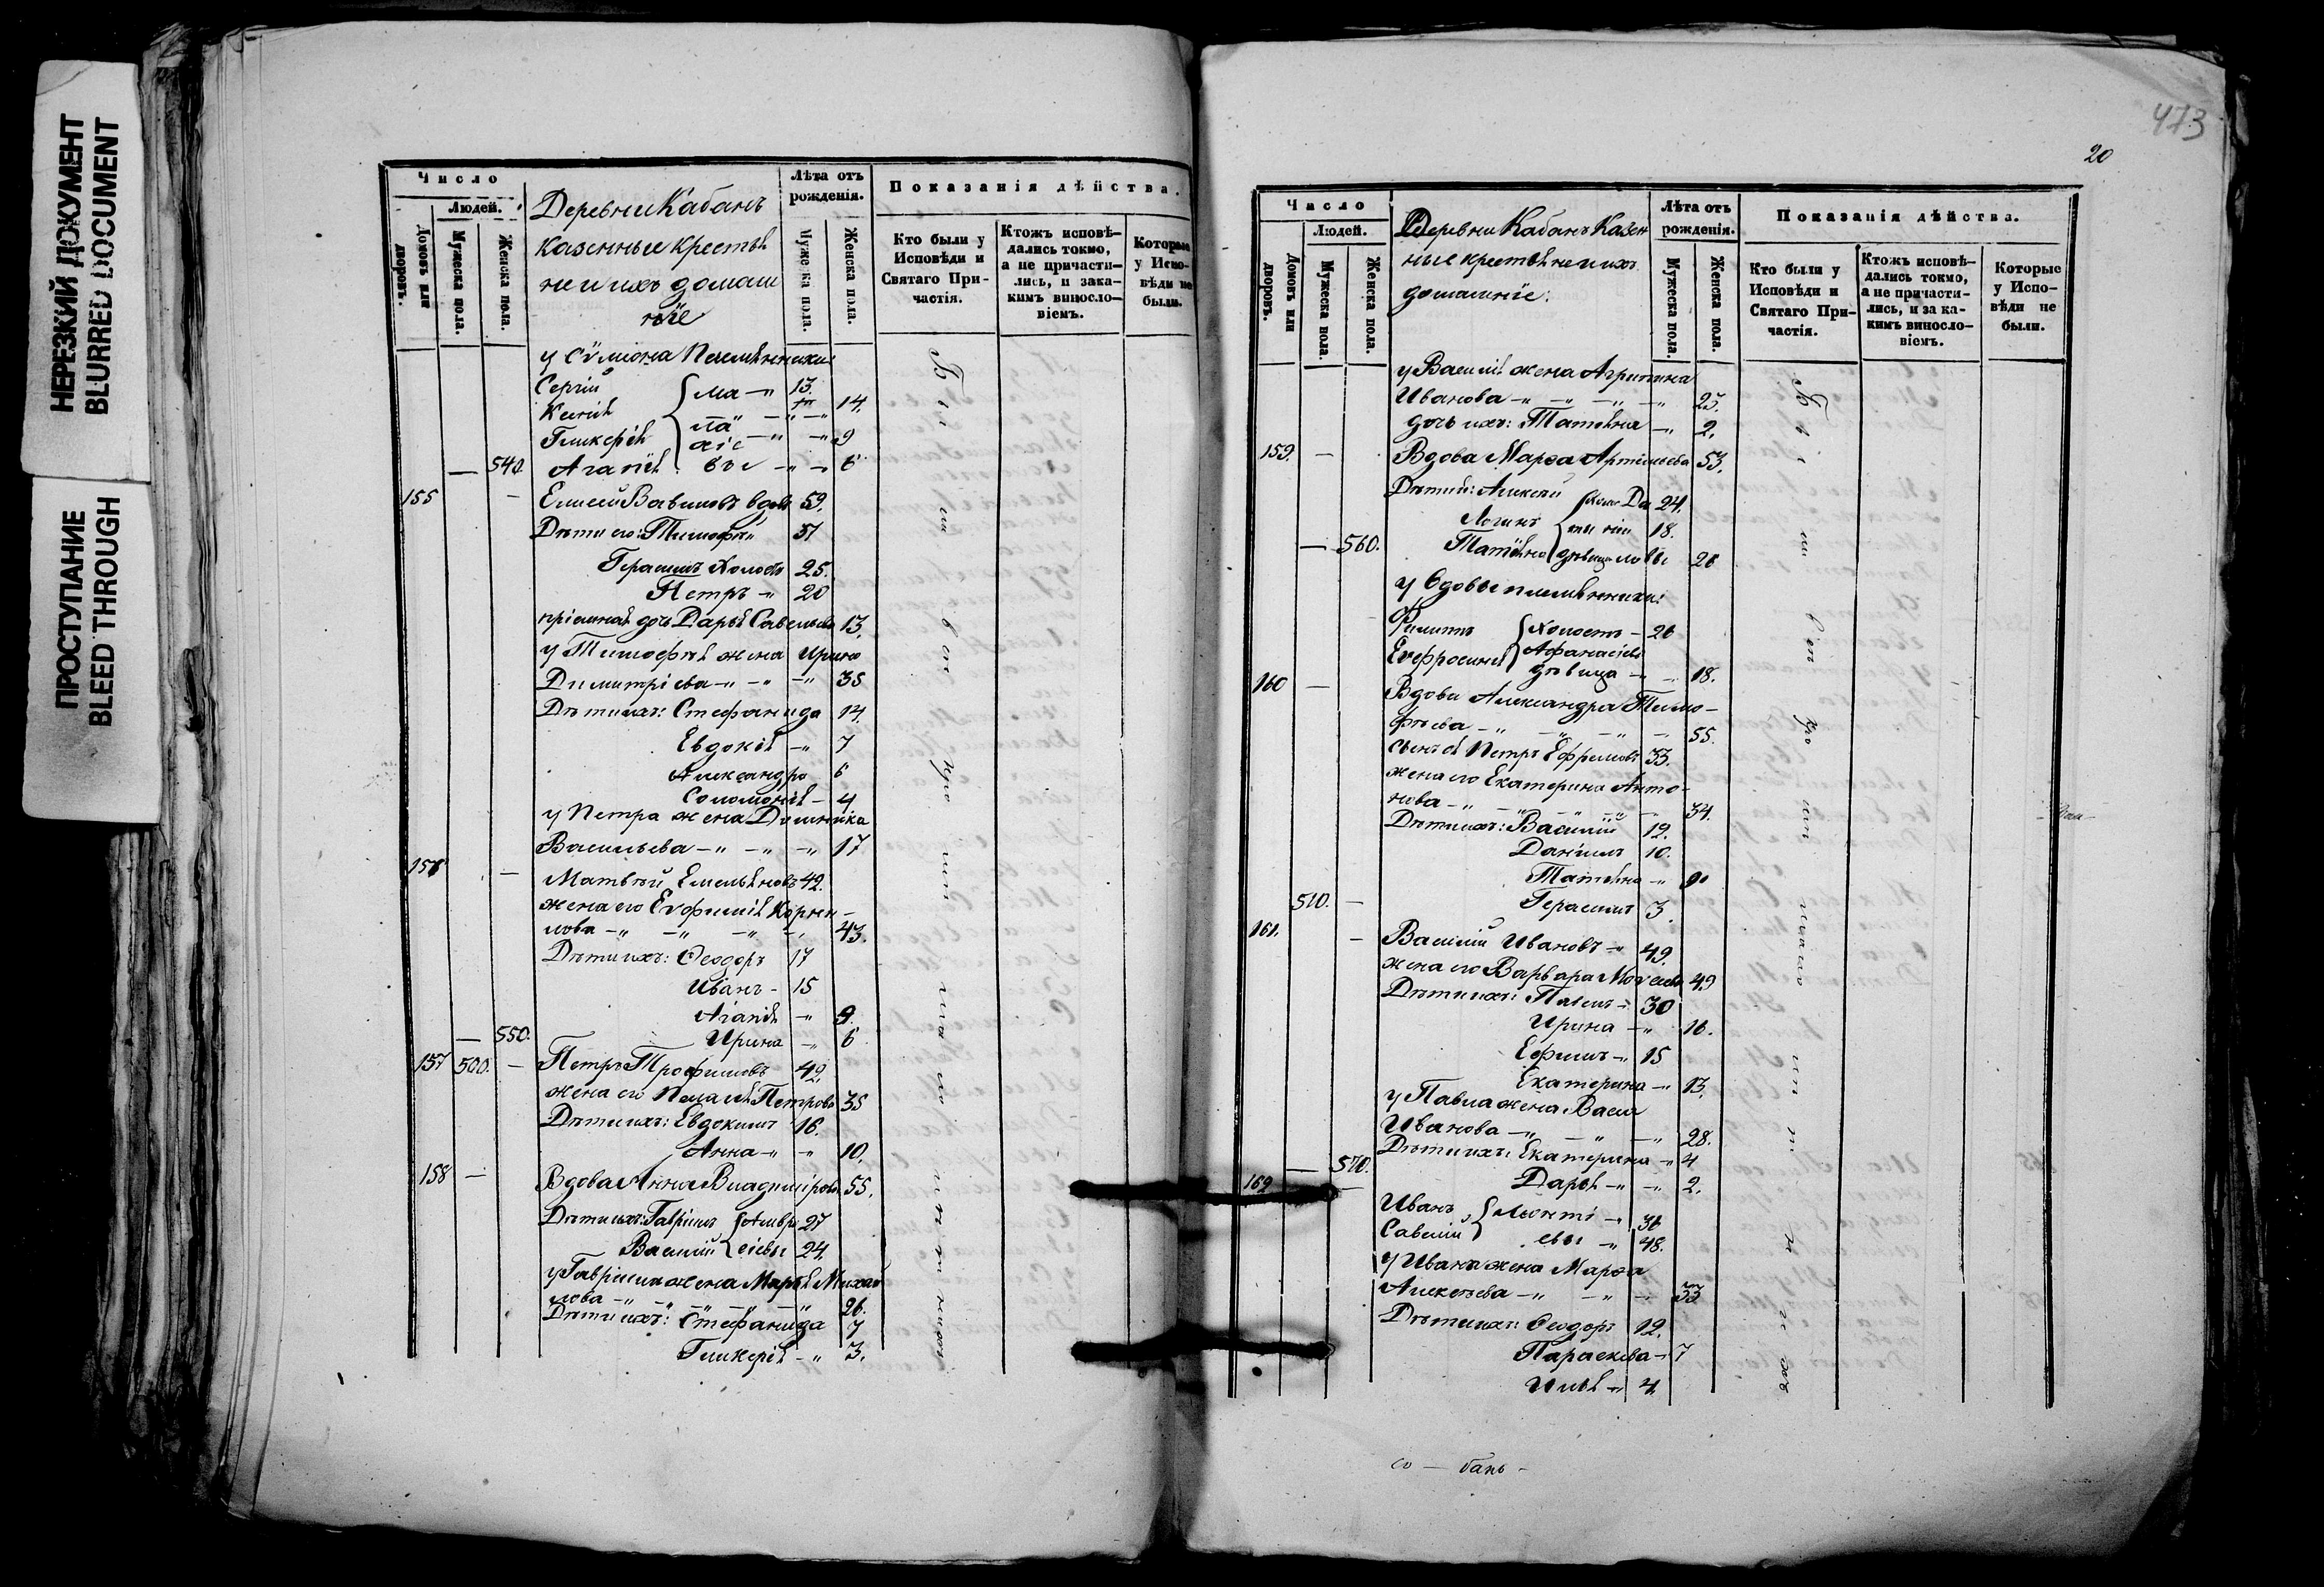 НЕРЕЗКИЙ ДОКУМЕНТ
BLURRED DOCUMENT
ПРОСТУПАНИЕ
BLEED THROUGH
Число
Людей.
Домовъ или дворовъ.
Мужеска пола.
Женска пола.
Деревни Кабанъ
казенные крестья
не и ихъ домаш
ніе
Лѣта отъ рожденія.
Мужеска пола.
Женска пола.
Показанія дѣйства.
Кто были у Исповѣди и Святаго При-частія.
Ктожъ исповѣ-дались токмо, а не причасти-лись, и за ка-кимъ винosло-віемъ.
Которые у Испо-вѣди не были.
у Сѵмиона племянники:
Сергій 13.
Ксенія 14.
Гликерія 9
540. Агапія 6
155 Елисей Вавиловъ вдовъ 59.
Дѣти его: Тимофѣй 37
Герасимъ холостъ 25.
Петръ 20
пріемная дочь Дарья Савельева 13.
у Тимофѣя жена Ирина
Димитріева 35
Дѣти ихъ: Стефанида 14.
Евдокія 7
Александра 6
Соломонія 4
у Петра жена Домника
Васильева 17
156 Матвѣй Емельяновъ 42.
жена его Евфимія Корни-
лова 43.
Дѣти ихъ: Ѳеодоръ 17
Иванъ 15
Агапія 9.
550. Ирина 6
157 500. Петръ Трофимовъ 42.
жена его Пелагія Петрова 35
Дѣти ихъ: Евдокимъ 16.
Анна 10.
158 Вдова Анна Владимірова 55.
Дѣти ихъ: Гавріилъ 27
Василій 24.
у Гавріила жена Марья Михай
лова 26.
Дѣти ихъ: Стефанида 7
Гликерія 3.
473
20
Число
Людей.
Домовъ или дворовъ.
Мужеска пола.
Женска пола.
Деревни Кабанъ Казен
ные крестьяне и ихъ
домашніе:
Лѣта отъ рожденія.
Мужеска пола.
Женска пола.
Показанія дѣйства.
Кто были у Исповѣди и Святаго При-частія.
Ктожъ исповѣ-дались токмо, а не причасти-лись, и за ка-кимъ винosло-віемъ.
Которые у Испо-вѣди не были.
у Василія жена Агрипина
Иванова 25.
дочь ихъ: Татьяна 2.
159. Вдова Марѳа Артемьева 53.
Дѣти ей: Алексѣй 24.
Логинъ 18.
560. Татьяна дѣвица 26
у вдовы племянники:
Филиппъ холостъ 26
Евфросинія Афанасіевы
дѣвица 18.
160 Вдова Александра Тимо-
фѣева 55.
сынъ ея Петръ Ефремовъ 33.
жена его Екатерина Анто-
нова 34.
Дѣти ихъ: Василій 12.
Даніилъ 10.
Татьяна
510. Герасимъ 3.
161. Василій Ивановъ 49.
жена его Варвара Моѵсеева 49
Дѣти ихъ: Павелъ 30
Ирина 16.
Ефимъ 15
Екатерина 13.
у Павла жена Васса
Иванова 28.
Дѣти ихъ: Екатерина 4
570. Дарья 2.
162 Иванъ Леонті 36
Савелій евы 48.
у Ивана жена Марѳа
Алексѣева 33
Дѣти ихъ: Ѳеодоръ 12.
Параскева 7
Илья 4.